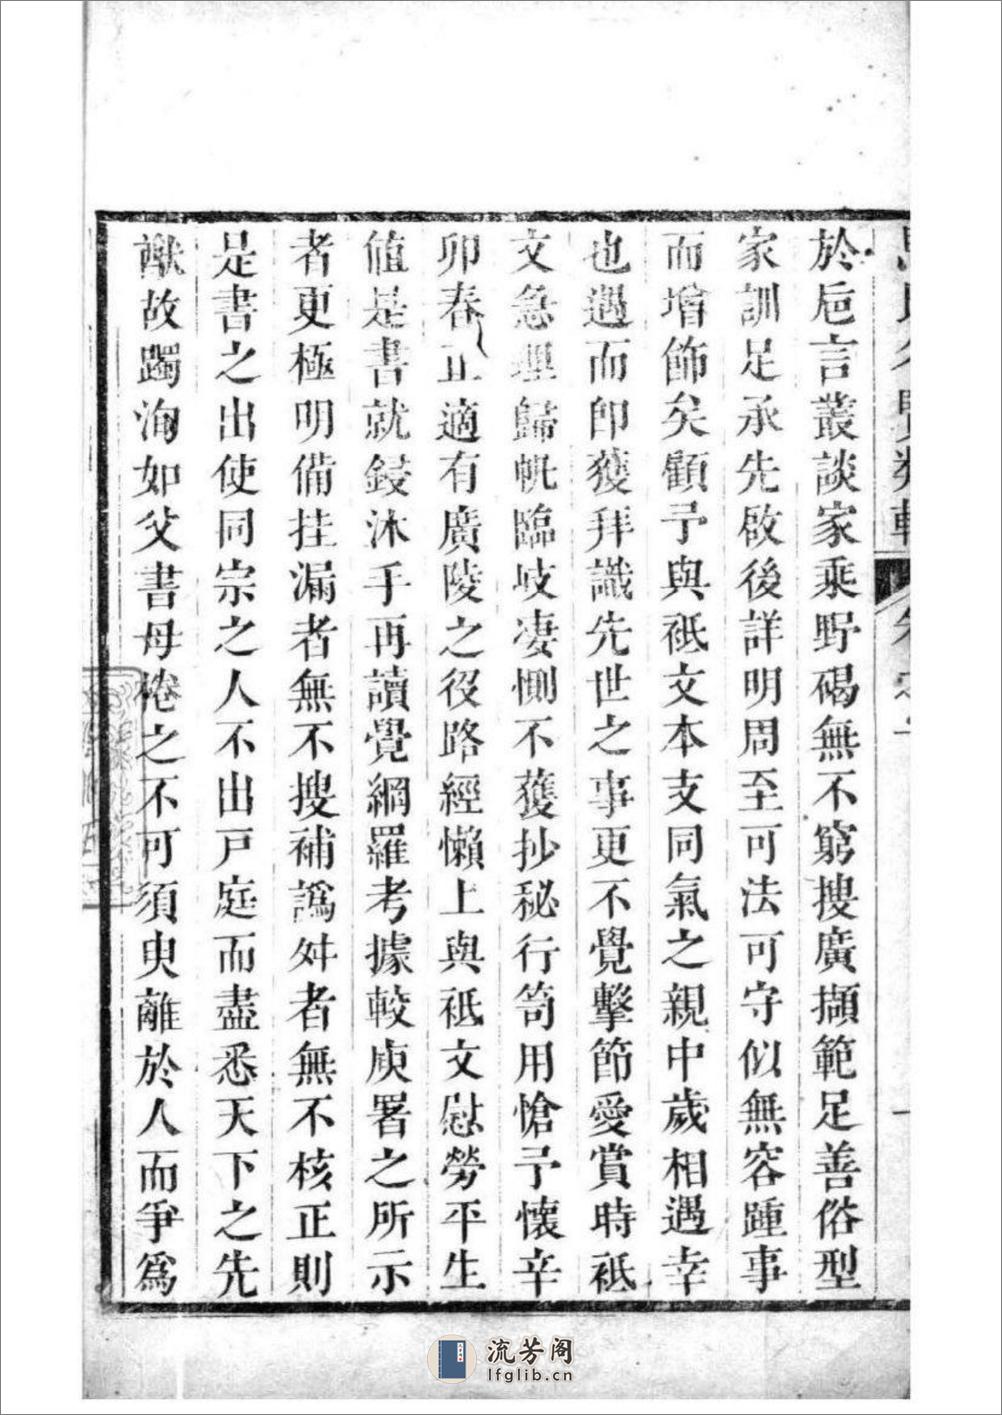 於卮言叢談家乘野碣無不窮搜廣擷範足善俗型
家訓足承先啟後詳明周至可法可守似無容踵事
而增飾矣顧予與祇文本支同氣之親中歲相遇幸
也遇而即獲拜識先世之事更不覺擊節愛賞時祇
文急理歸帆臨岐凄惻不獲抄秘行笥用愴予懷辛
卯春正適有廣陵之役路經懶上與祇文慰勞平生
值是書就鋟沐手再讀覺網羅考據較庾署之所示
者更極明備挂漏者無不搜補譌舛者無不核正則
是書之出使同宗之人不出戸庭而盡悉天下之先
猷故躅洵如父書母棬之不可須臾離於人而爭爲
流芳阁
lfglib.cn